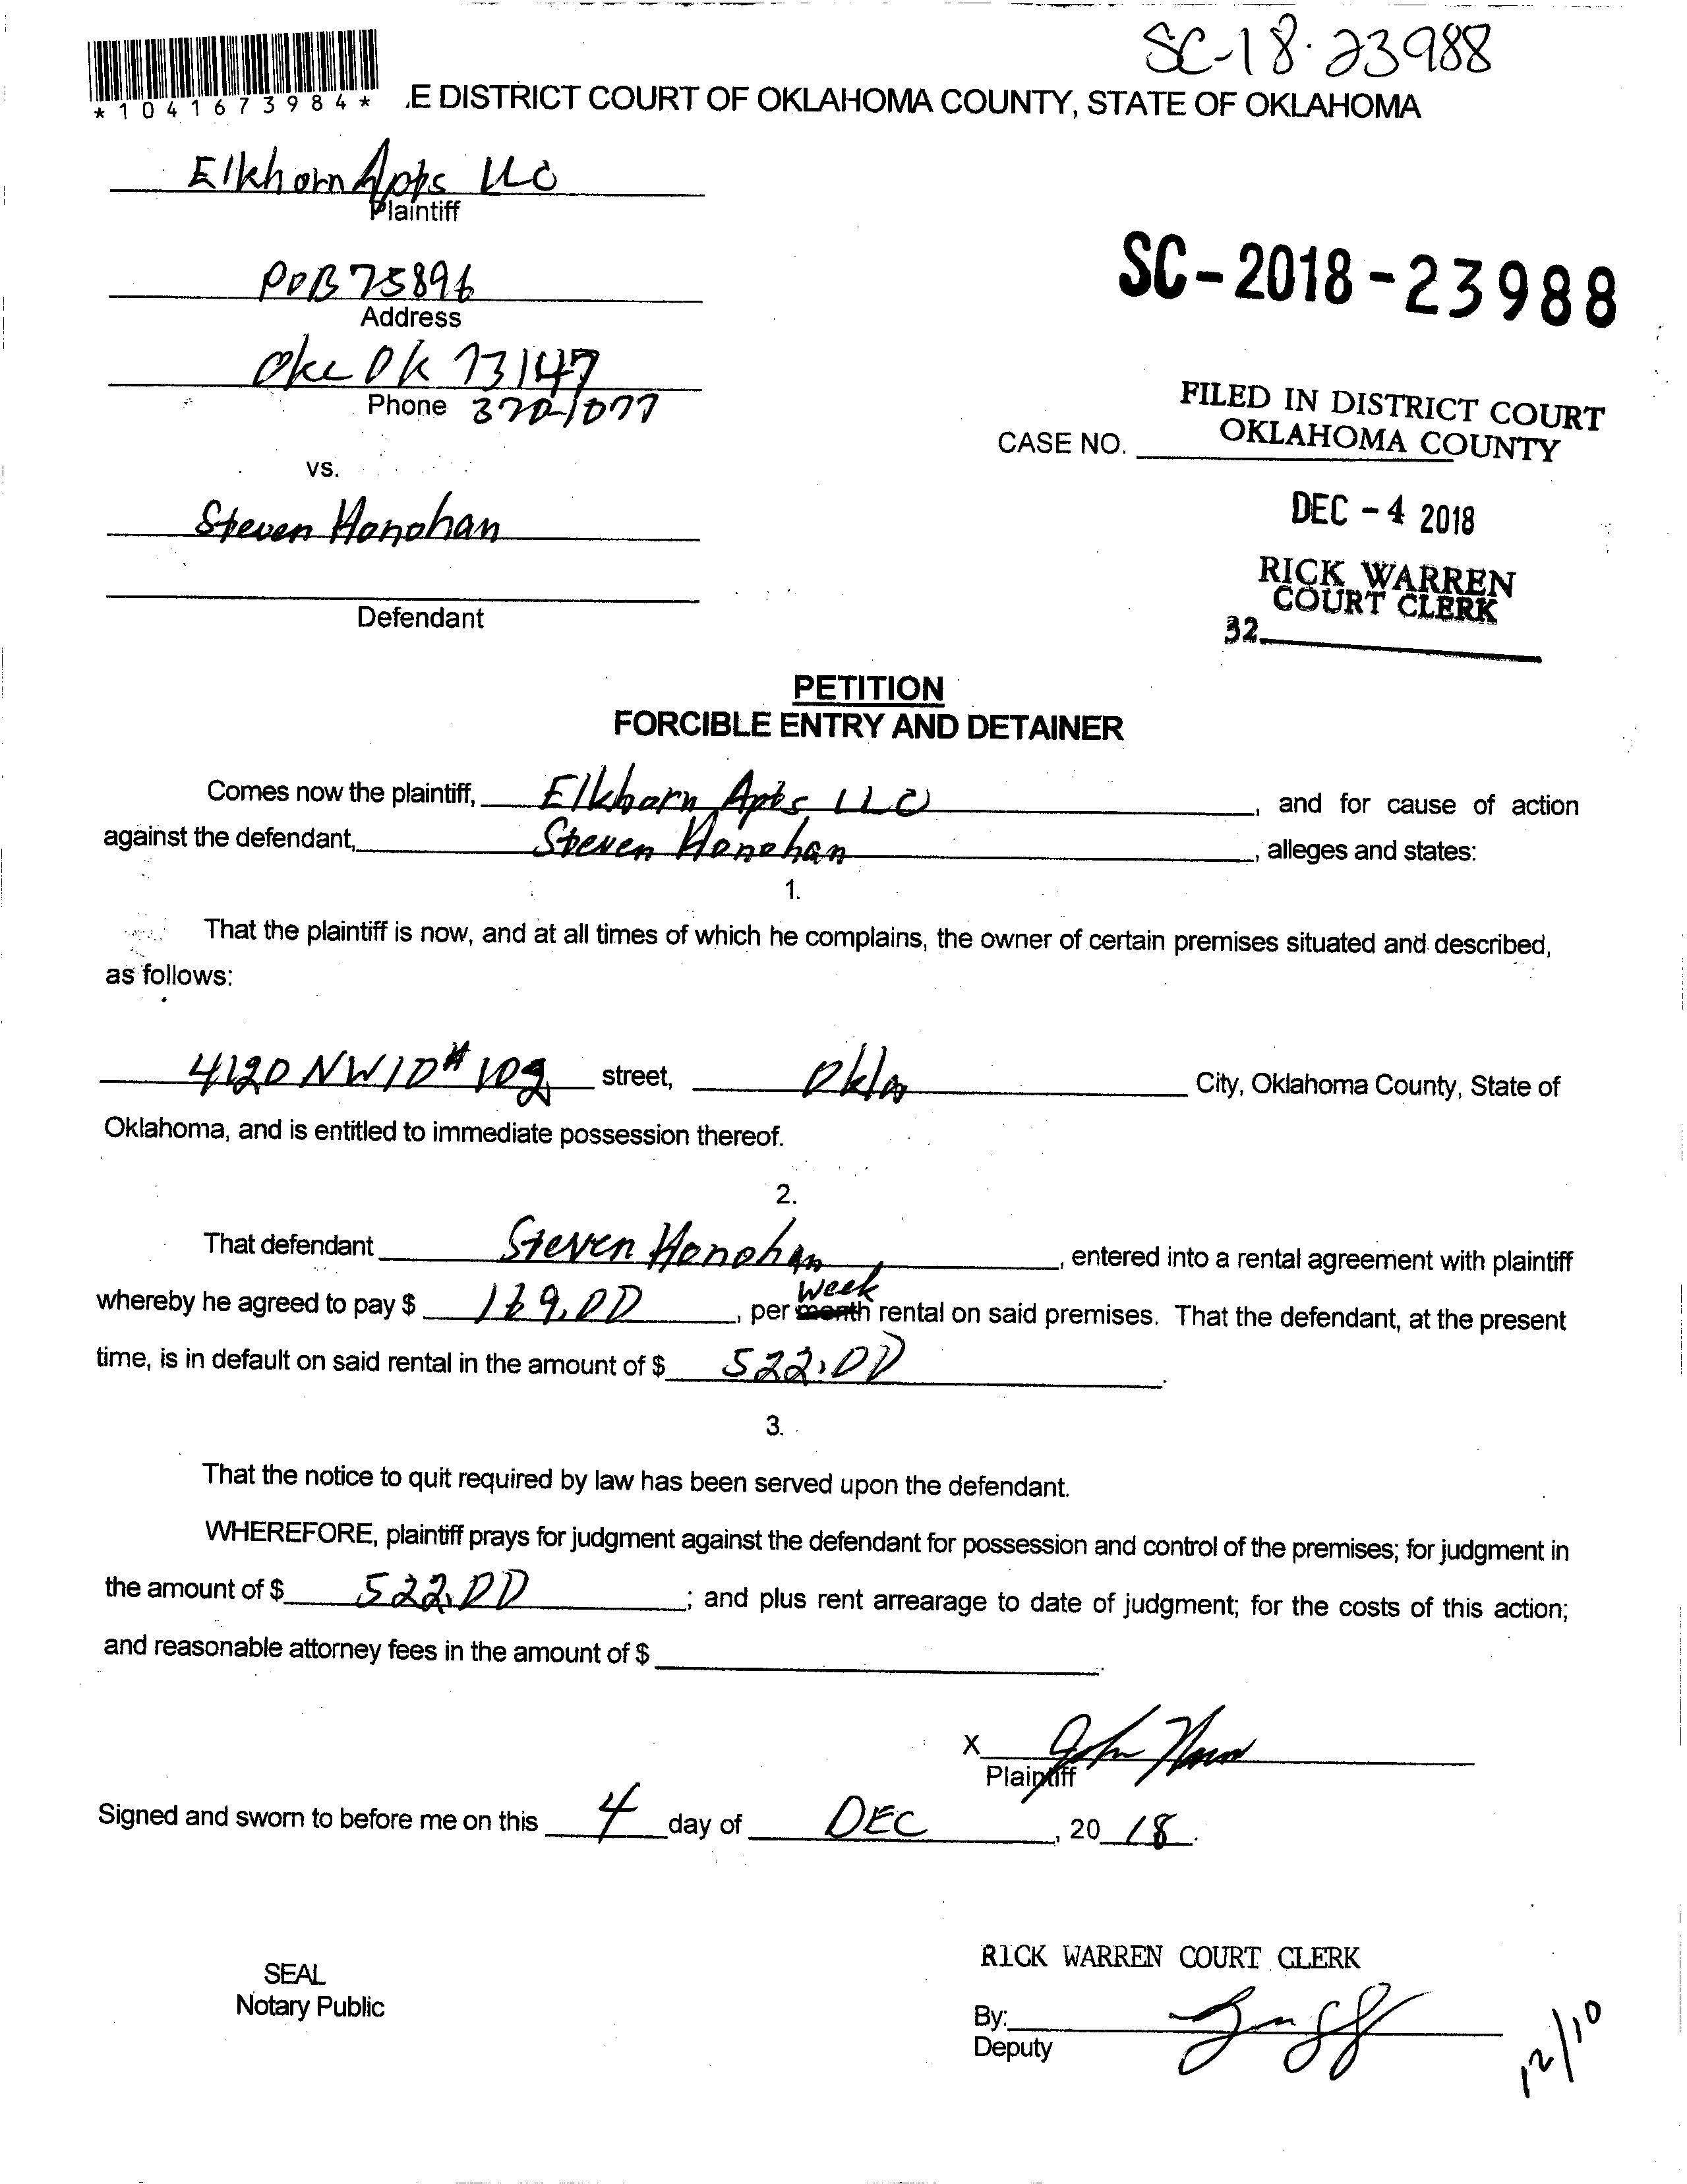 SC-18-23988
*1041673984* .E DISTRICT COURT OF OKLAHOMA COUNTY, STATE OF OKLAHOMA
Elkhorn Apts LLC
Plaintiff
POB 75896
Address
SC-2018-23988
Okc Ok 73147
Phone 370-1077
FILED IN DISTRICT COURT
OKLAHOMA COUNTY
CASE NO.
vs.
Steven Honohan
DEC - 4 2018
RICK WARREN
COURT CLERK
Defendant
32
PETITION
FORCIBLE ENTRY AND DETAINER
Comes now the plaintiff, Elkhorn Apts LLC, and for cause of action
against the defendant, Steven Honohan, alleges and states:
1.
That the plaintiff is now, and at all times of which he complains, the owner of certain premises situated and described,
as follows:
4120 NW 10 # 102 street, Okla City, Oklahoma County, State of
Oklahoma, and is entitled to immediate possession thereof.
2.
That defendant Steven Honohan, entered into a rental agreement with plaintiff
week
whereby he agreed to pay $ .00, per month rental on said premises. That the defendant, at the present
time, is in default on said rental in the amount of $ 522.00.
3.
That the notice to quit required by law has been served upon the defendant.
WHEREFORE, plaintiff prays for judgment against the defendant for possession and control of the premises; for judgment in
the amount of $ 522.00; and plus rent arrearage to date of judgment; for the costs of this action;
and reasonable attorney fees in the amount of $ .
X John
Plaintiff
Signed and sworn to before me on this 4 day of DEC, 2018.
RICK WARREN COURT CLERK
SEAL
Notary Public
By:
Deputy
12/10